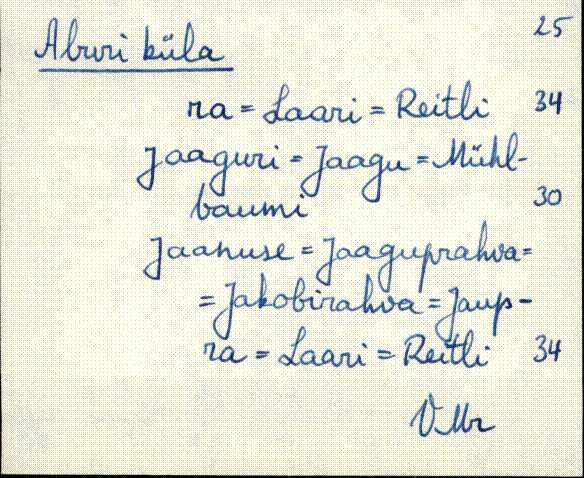 Abruri küla 25
ra = Laari = Reitli 34
Jaaguri = Jaagu = Mühl-
baumi 30
Jaanuse = Jaaguprahva =
= Jakobirahva = Jaup-
ra = Laari = Reitli 34
VMr